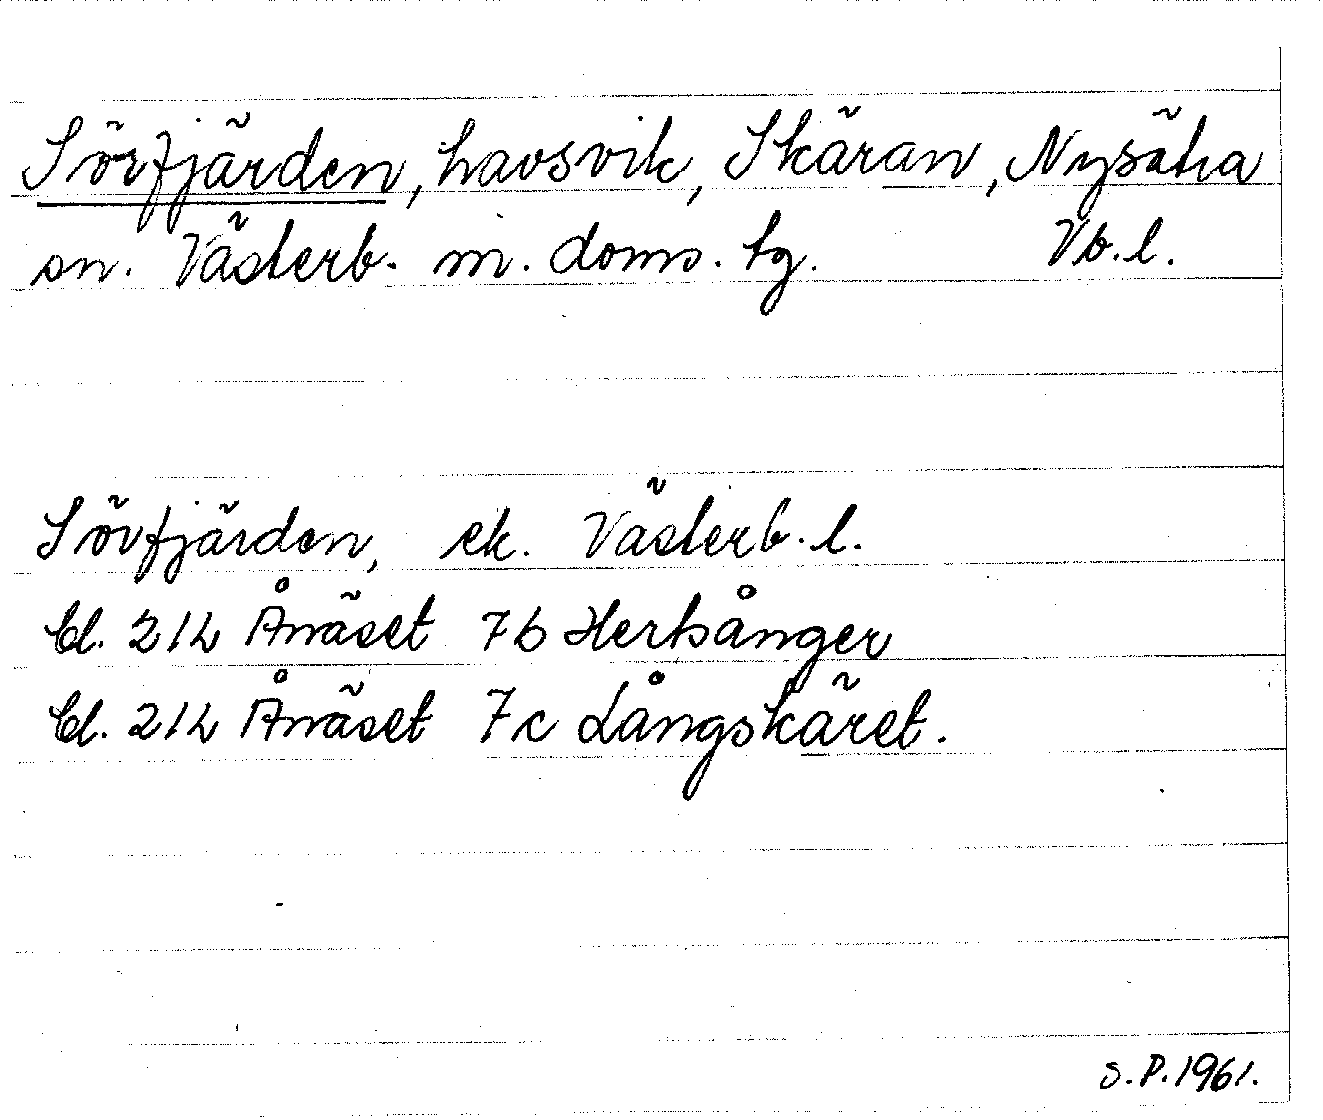 Sörfjärden, havsvik, Skäran, Nysätra
sn. Västerb. m. doms. tg. Vb.l.
Sörfjärden, ek. Västerb.l.
bl. 21L Ånäset 7b Hertsånger
bl. 21L Ånäset 7c Långskäret.
S.P.1961.